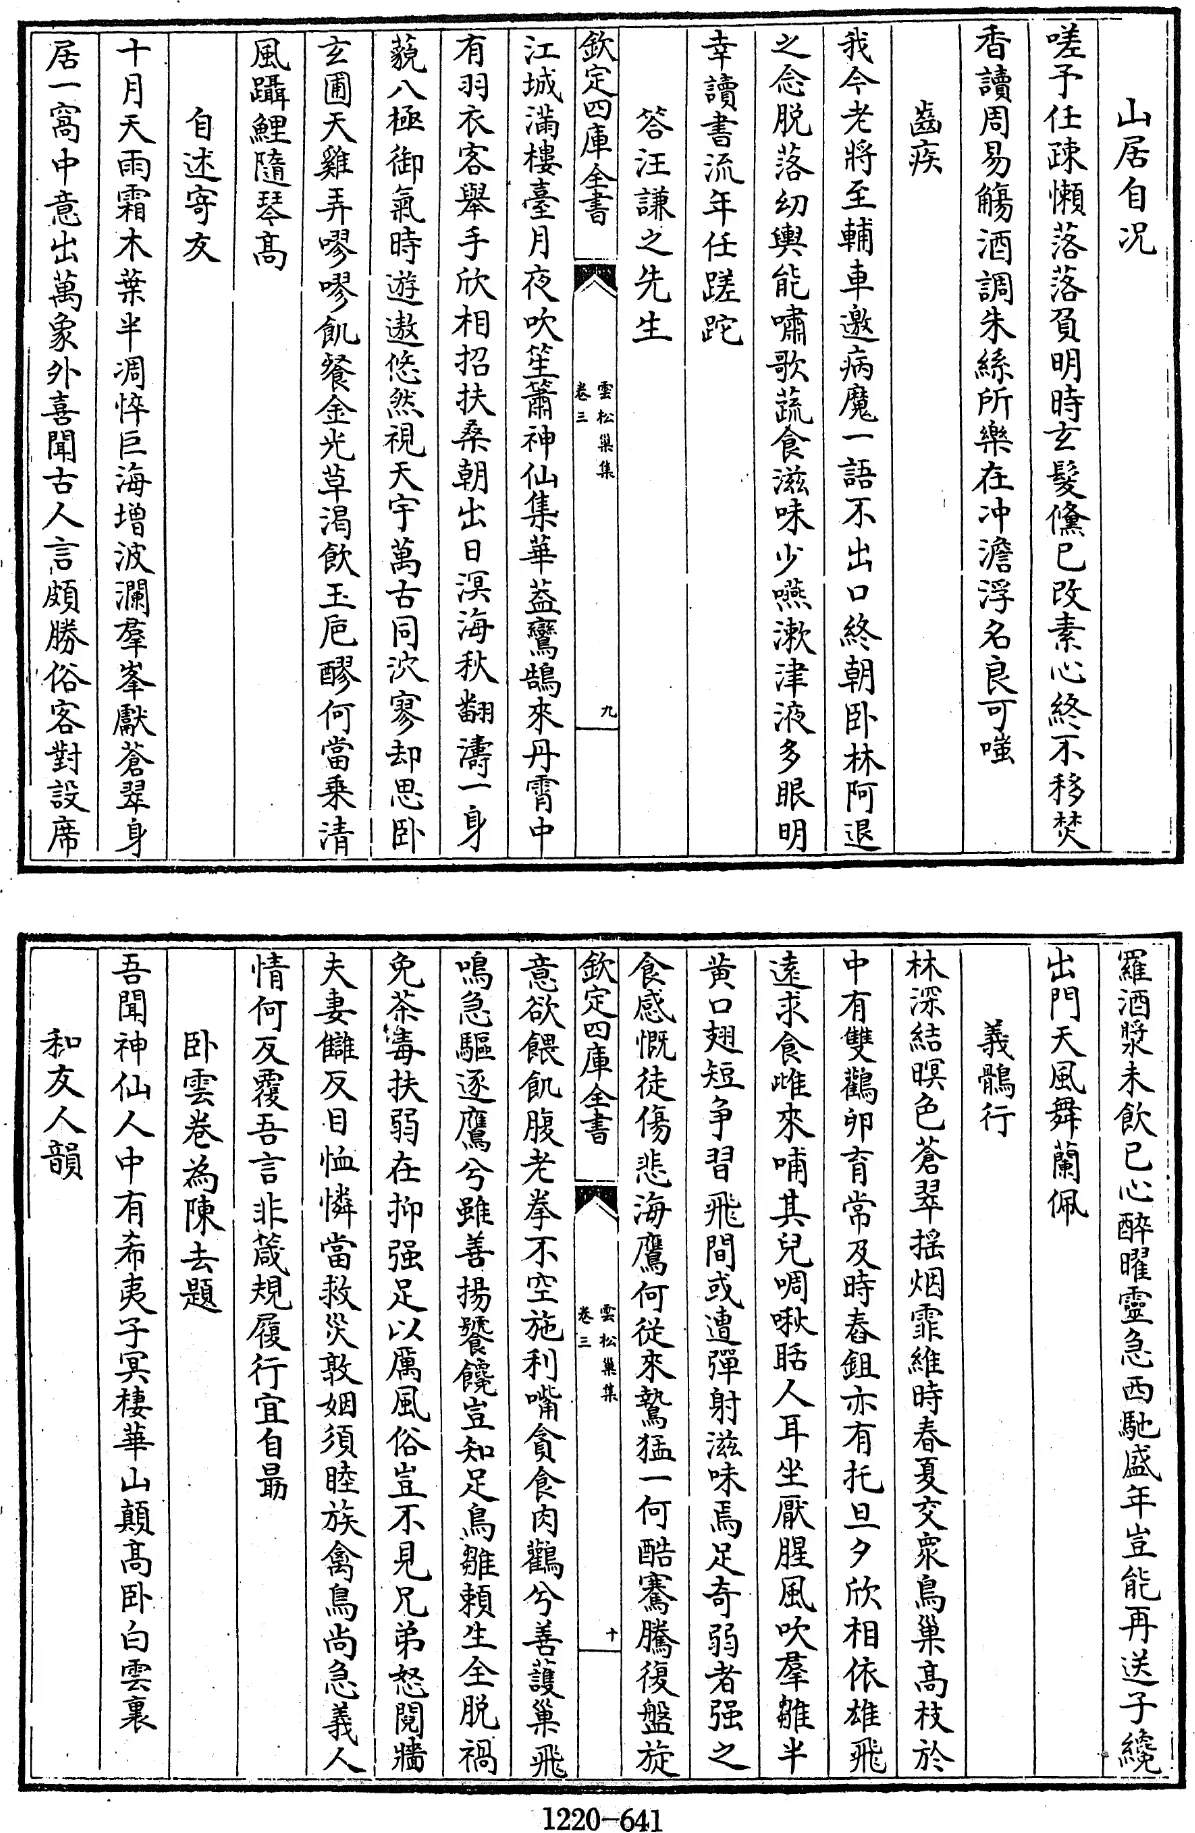 山居自况
嗟予任疎懶落落負明時玄髮儵已改素心終不移焚
香讀周易觴酒調朱絲所樂在冲澹浮名良可嗤
齒疾
我今老將至輔車邀病魔一語不出口終朝卧林阿退
之念脱落幼輿能嘯歌蔬食滋味少嚥漱津液多眼明
幸讀書流年任蹉跎
答汪謙之先生
欽定四庫全書
雲松巢集
卷三
九
江城滿樓臺月夜吹笙簫神仙集華葢鸞鵠來丹霄中
有羽衣客舉手欣相招扶桑朝出日溟海秋翻濤一身
藐八極御氣時遊遨悠然視天宇萬古同泬寥却思卧
玄圃天雞弄嘐嘐飢餐金光草渴飲玉巵醪何當乗清
風躡鯉隨琴髙
自述寄友
十月天雨霜木葉半凋悴巨海增波瀾羣峯獻蒼翠身
居一窩中意出萬象外喜聞古人言頗勝俗客對設席
羅酒漿未飲已心醉曜靈急西馳盛年豈能再送子纔
出門天風舞蘭佩
義鶻行
林深結暝色蒼翠摇烟霏維時春夏交衆鳥巢髙枝於
中有雙鸛卵育常及時舂鉏亦有托旦夕欣相依雄飛
遠求食雌來哺其兒啁啾聒人耳坐厭腥風吹羣雛半
黄口翅短争習飛間或遭彈射滋味焉足奇弱者强之
食感慨徒傷悲海鷹何從來鷙猛一何酷騫騰復盤旋
欽定四庫全書
雲松巢集
卷三
十
意欲餵飢腹老拳不空施利嘴貪食肉鸛兮善䕶巢飛
鳴急驅逐鷹兮雖善揚饕饞豈知足鳥雛頼生全脱禍
免荼毒扶弱在抑强足以厲風俗豈不見兄弟怒䦧牆
夫妻讎反目恤憐當救災敦姻須睦族禽鳥尚急義人
情何反覆吾言非箴規履行宜自勗
卧雲巻為陳去題
吾聞神仙人中有希夷子冥棲華山顛髙卧白雲裏
和友人韻
1220-641